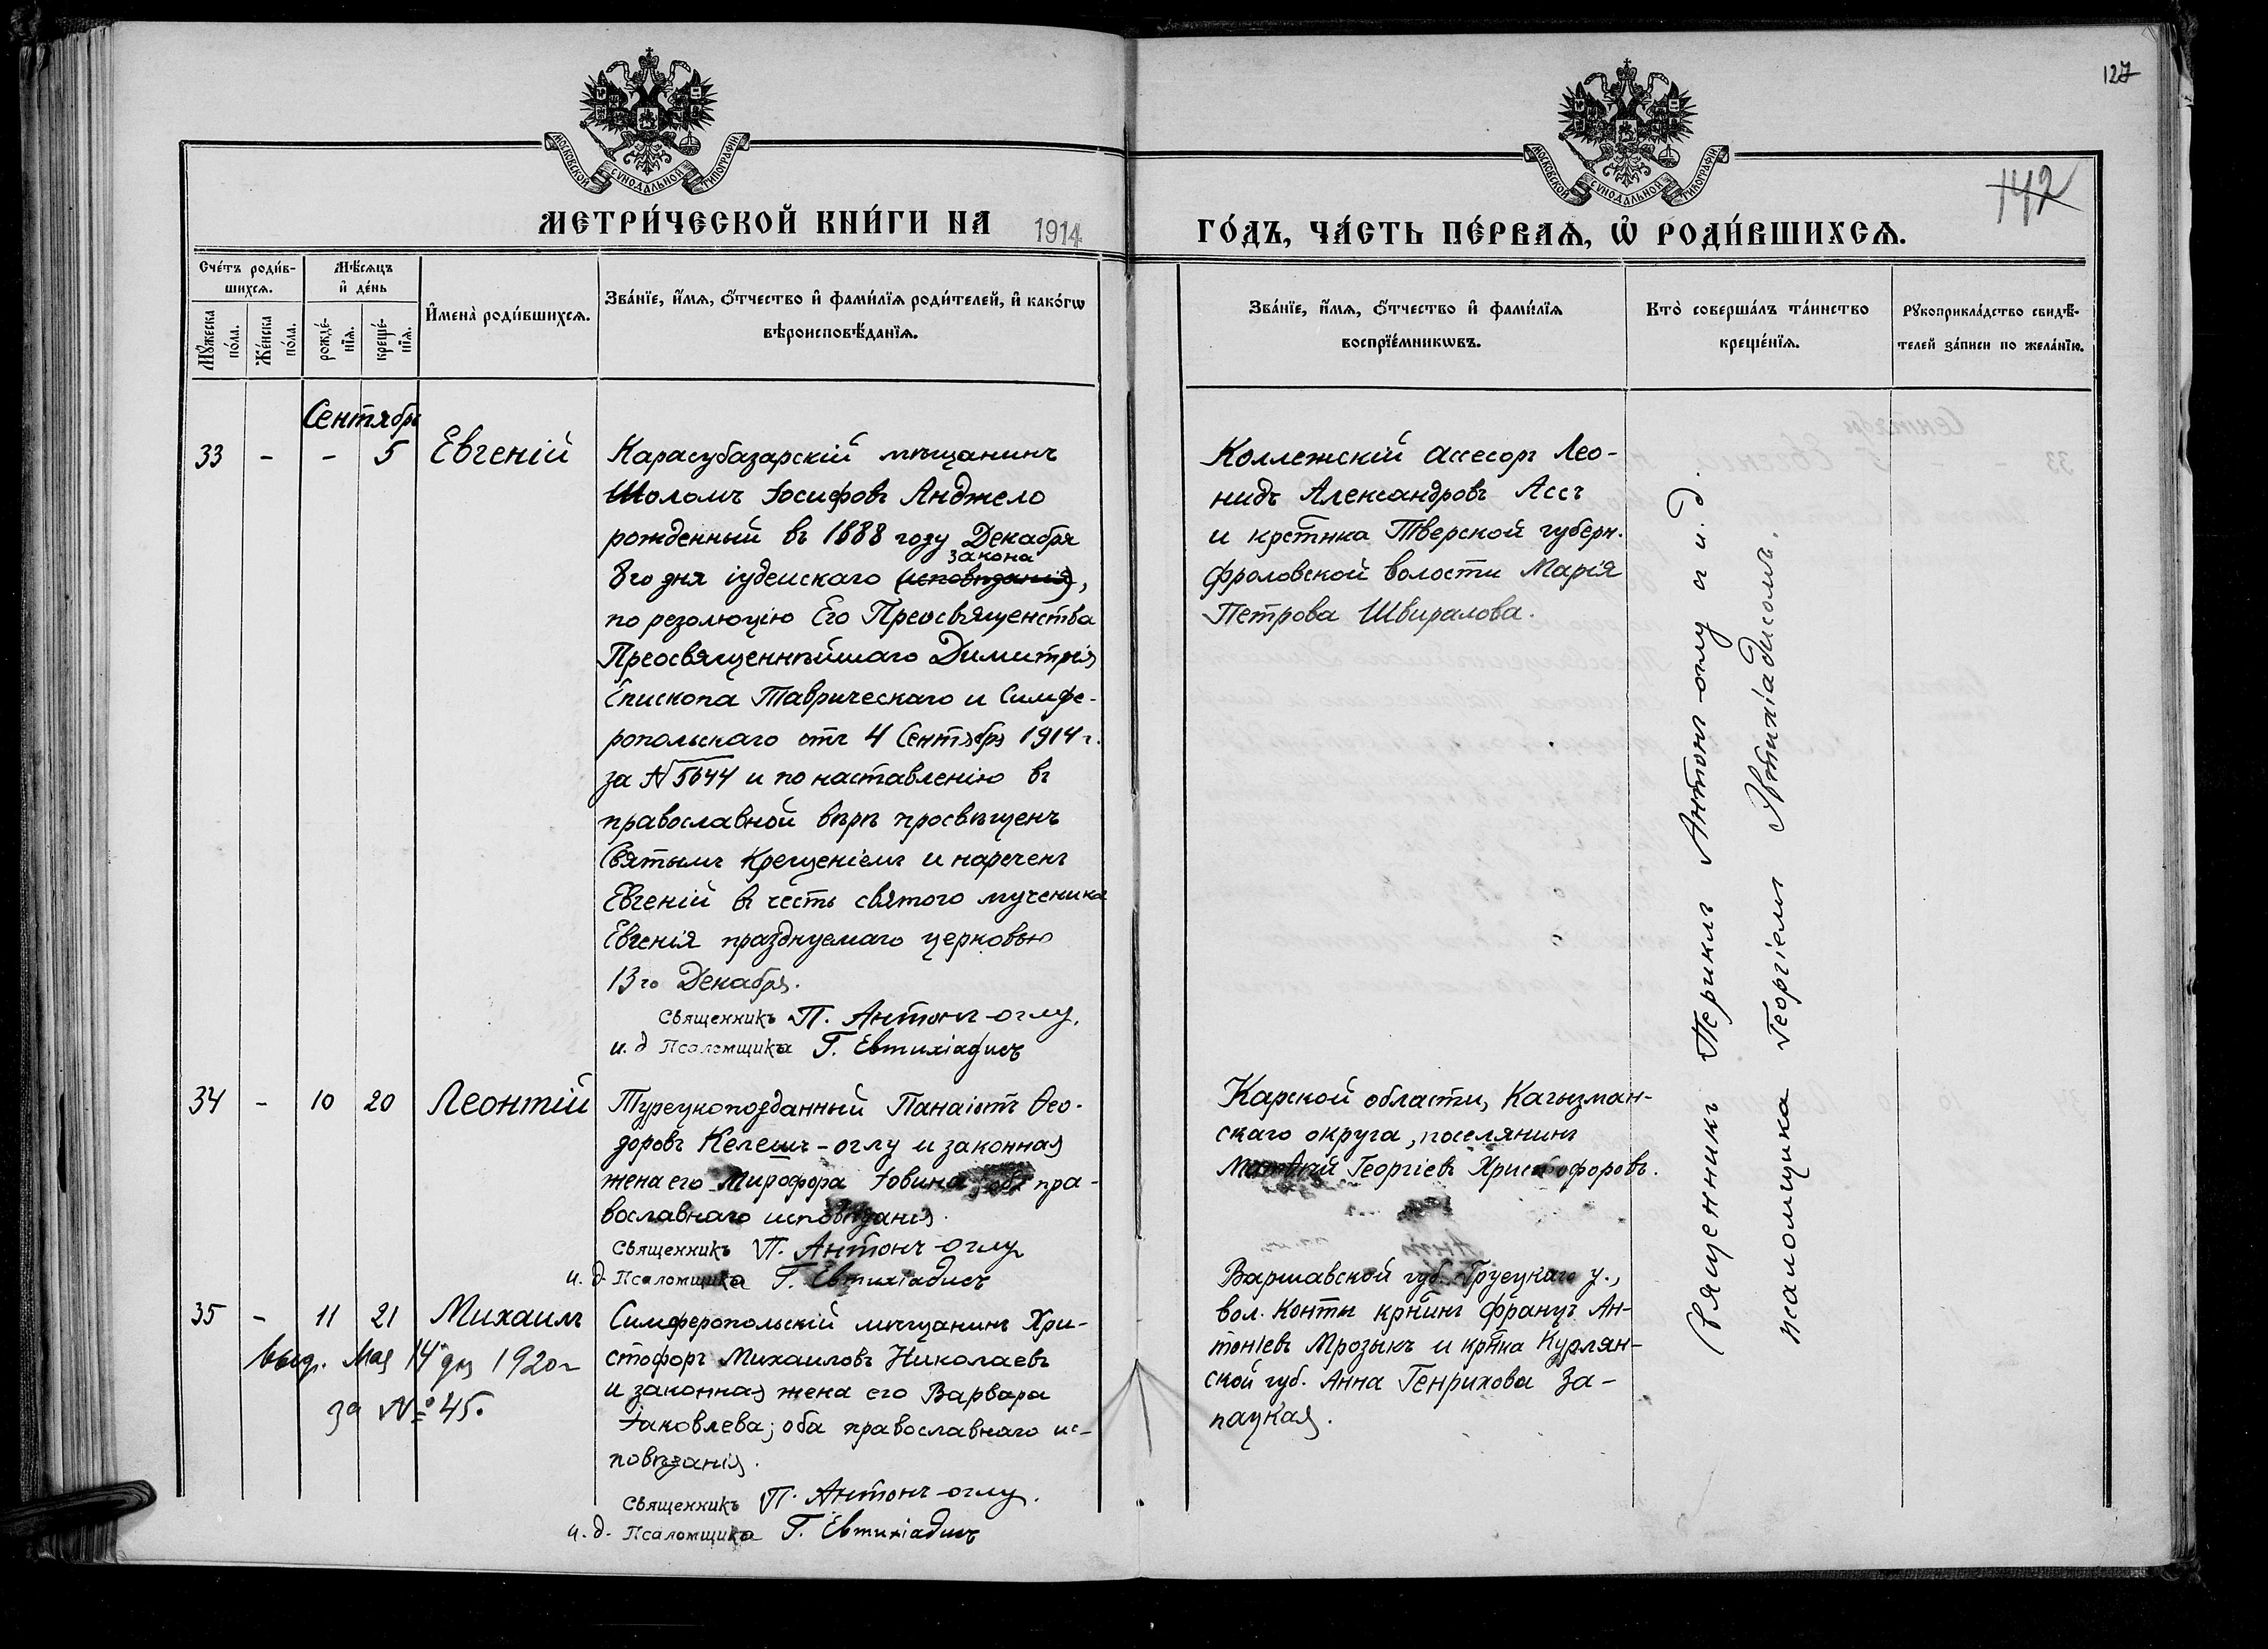 127
142
МОСКОВСКОЙ СѴНОДАЛЬНОЙ ТИПОГРАФІИ
МОСКОВСКОЙ СѴНОДАЛЬНОЙ ТИПОГРАФІИ
МЕТРИ́ЧЕСКОЙ КНИ́ГИ НА 1914 ГО́ДЪ, ЧА́СТЬ ПЕ́РВАѦ, Ѡ҆ РОДИ́ВШИХСѦ.
Сче́тъ роди́в-
шихсѧ.
Мꙋ́жеска по́ла.
Же́нска по́ла.
Мѣ́сѧцъ
и҆ де́нь
рожде́-
нїѧ.
креще́-
нїѧ.
И҆мена̀ роди́вшихсѧ.
Зва́нїе, и҆́мѧ, ѻ҆́тчество и҆ фами́лїѧ роди́телей, и҆ како́гѡ
вѣроисповѣ́данїѧ.
Зва́нїе, и҆́мѧ, ѻ҆́тчество и҆ фами́лїѧ
воспрїе́мникѡвъ.
Кто̀ соверша́лъ та́инство
креще́нїѧ.
Рꙋкоприкла́дство свидѣ́-
телей за́писи по жела́нїю.
Сентябрь
33 - - 5 Евгеній
Карасубазарскій мѣщанинъ
Шоломъ Іосифовъ Анджело
рожденный въ 1888 году Декабря
закона
8го дня іудейскаго (исповѣданія),
по резолюцію Его Преосвященства
Преосвященнѣйшаго Димитрія
Епископа Таврическаго и Симфе-
ропольскаго отъ 4 Сентября 1914 г.
за N 5644 и по наставленію въ
православной вѣрѣ просвѣщенъ
Святымъ Крещеніемъ и нареченъ
Евгеній въ честь святого мученика
Евгенія празднуемаго церковью
13го Декабря.
Священникъ П. Антонъ-оглу.
и. д Псаломщика Г. Евтихіадисъ
Коллежскій ассесоръ Лео-
нидъ Александровъ Ассъ
и крстнка Тверской губерн.
Фроловской волости Марія
Петрова Швиралова.
34 - 10 20 Леонтій
Турецкоподданный Панаіотъ Ѳео-
доровъ Келешъ-оглу и законная
жена его Мирофора Іовина, оба пра-
вославнаго исповѣданія.
Священникъ П. Антонъ-оглу
и. д. Псаломщика Г. Евтихіадисъ
Карской области, Кагызман-
скаго округа, поселянинъ
Матвѣй Георгіевъ Христофоровъ.
35 - 11 21 Михаилъ
выд. Мая 14 дня 1920 г
за №45.
Симферопольскій мѣщанинъ Хри-
стофоръ Михаиловъ Николаевъ
и законная жена его Варвара
Іаковлева; оба православнаго ис-
повѣданія.
Священникъ П. Антонъ-оглу.
и. д. Псаломщика Г. Евтихіадисъ
Варшавской губ. Груецкаго у.,
вол. Конты крнинъ Францъ Ан-
тоніевъ Мрозыкъ и крнка Курлян-
ской губ. Анна Генрихова За-
пацкая.
Священникъ Периклъ Антонъ-оглу а и. д.
псаломщика Георгіемъ Эвтихіадисомъ.